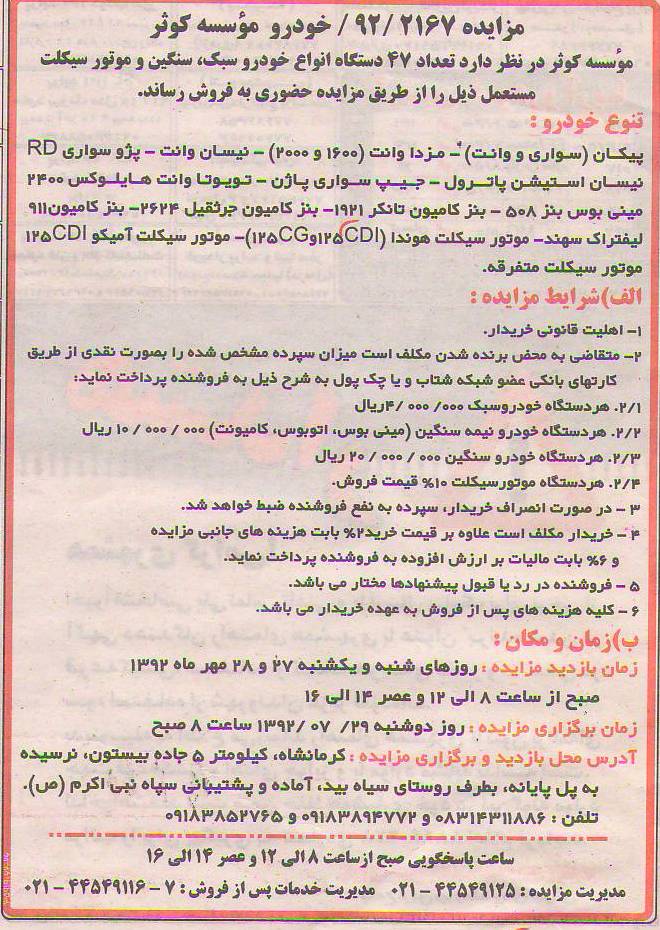 مزایده ۲۱۶۷ /۹۲/ خودرو مؤسسه کوثر
مؤسسه کوثر در نظر دارد تعداد ۴۷ دستگاه انواع خودرو سبک، سنگین و موتور سیکلت
مستعمل ذیل را از طریق مزایده حضوری به فروش رساند.
تنوع خودرو :
پیکان (سواری و وانت) – مزدا وانت (۱۶۰۰ و ۲۰۰۰) – نیسان وانت – پژو سواری RD
نیسان استیشن پاترول – جیپ سواری پاژن – تویوتا وانت هایلوکس ۲۴۰۰
مینی بوس بنز ۵۰۸ – بنز کامیون تانکر ۱۹۲۱– بنز کامیون جرثقیل ۲۶۲۴– بنز کامیون۹۱۱
لیفتراک سهند– موتور سیکلت هوندا (۱۲۵CDIو۱۲۵CG)– موتور سیکلت آمیکو ۱۲۵CDI
موتور سیکلت متفرقه.
الف)شرایط مزایده :
۱– اهلیت قانونی خریدار.
۲– متقاضی به محض برنده شدن مکلف است میزان سپرده مشخص شده را بصورت نقدی از طریق
کارتهای بانکی عضو شبکه شتاب و یا چک پول به شرح ذیل به فروشنده پرداخت نماید:
۲/۱. هردستگاه خودروسبک ۰۰۰/ ۰۰۰ /۴ریال
۲/۲. هردستگاه خودرو نیمه سنگین (مینی بوس، اتوبوس، کامیونت) ۰۰۰ / ۰۰۰ / ۱۰ ریال
۲/۳. هردستگاه خودرو سنگین ۰۰۰ / ۰۰۰ / ۲۰ ریال
۲/۴. هردستگاه موتورسیکلت ۱۰% قیمت فروش.
۳ – در صورت انصراف خریدار، سپرده به نفع فروشنده ضبط خواهد شد.
۴ – خریدار مکلف است علاوه بر قیمت خرید۲% بابت هزینه های جانبی مزایده
و ۶% بابت مالیات بر ارزش افزوده به فروشنده پرداخت نماید.
۵ – فروشنده در رد یا قبول پیشنهادها مختار می باشد.
۶ – کلیه هزینه های پس از فروش به عهده خریدار می باشد.
ب)زمان و مکان :
زمان بازدید مزایده : روزهای شنبه و یکشنبه ۲۷ و ۲۸ مهر ماه ۱۳۹۲
صبح از ساعت ۸ الی ۱۲ و عصر ۱۴ الی ۱۶
زمان برگزاری مزایده : روز دوشنبه ۲۹/ ۰۷ /۱۳۹۲ ساعت ۸ صبح
آدرس محل بازدید و برگزاری مزایده : کرمانشاه، کیلومتر ۵ جاده بیستون، نرسیده
به پل پایانه، بطرف روستای سیاه بید، آماده و پشتیبانی سپاه نبی اکرم (ص).
تلفن : ۰۸۳۱۴۳۱۱۸۸۶ و ۰۹۱۸۳۸۹۴۷۷۲ و ۰۹۱۸۳۸۵۲۷۶۵
ساعت پاسخگویی صبح ازساعت ۸ الی ۱۲ و عصر ۱۴ الی ۱۶
مدیریت مزایده : ۴۴۵۴۹۱۲۵ – ۰۲۱ مدیریت خدمات پس از فروش : ۷ – ۴۴۵۴۹۱۱۶ – ۰۲۱